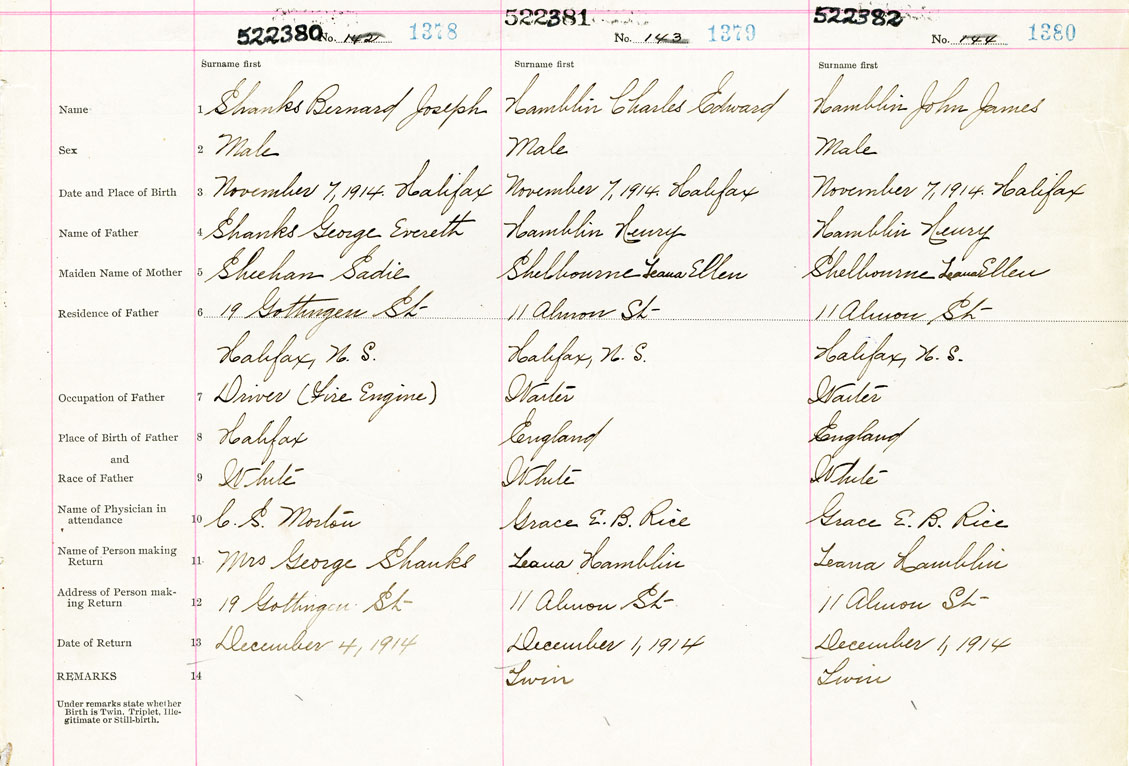 522380 No. 142 1378 522381 No. 143 1379 522382 No. 144 1380
Surname first Surname first Surname first
Name 1 Shanks Bernard Joseph Hamblin Charles Edward Hamblin John James
Sex 2 Male Male Male
Date and Place of Birth 3 November 7, 1914. Halifax November 7, 1914. Halifax November 7, 1914. Halifax
Name of Father 4 Shanks George Evereth Hamblin Henry Hamblin Henry
Maiden Name of Mother 5 Sheehan Sadie Shelbourne Leana Ellen Shelbourne Leana Ellen
Residence of Father 6 19 Gottingen St 11 Almon St 11 Almon St
Halifax, N. S. Halifax, N. S. Halifax, N. S.
Occupation of Father 7 Driver (Fire Engine) Waiter Waiter
Place of Birth of Father 8 Halifax England England
and
Race of Father 9 White White White
Name of Physician in
attendance 10 C. S. Morton Grace E. B. Rice Grace E. B. Rice
Name of Person making
Return 11 Mrs George Shanks Leana Hamblin Leana Hamblin
Address of Person mak-
ing Return 12 19 Gottingen St 11 Almon St 11 Almon St
Date of Return 13 December 4, 1914 December 1, 1914 December 1, 1914
REMARKS 14 Twin Twin
Under remarks state whether
Birth is Twin, Triplet, Ille-
gitimate or Still-birth.